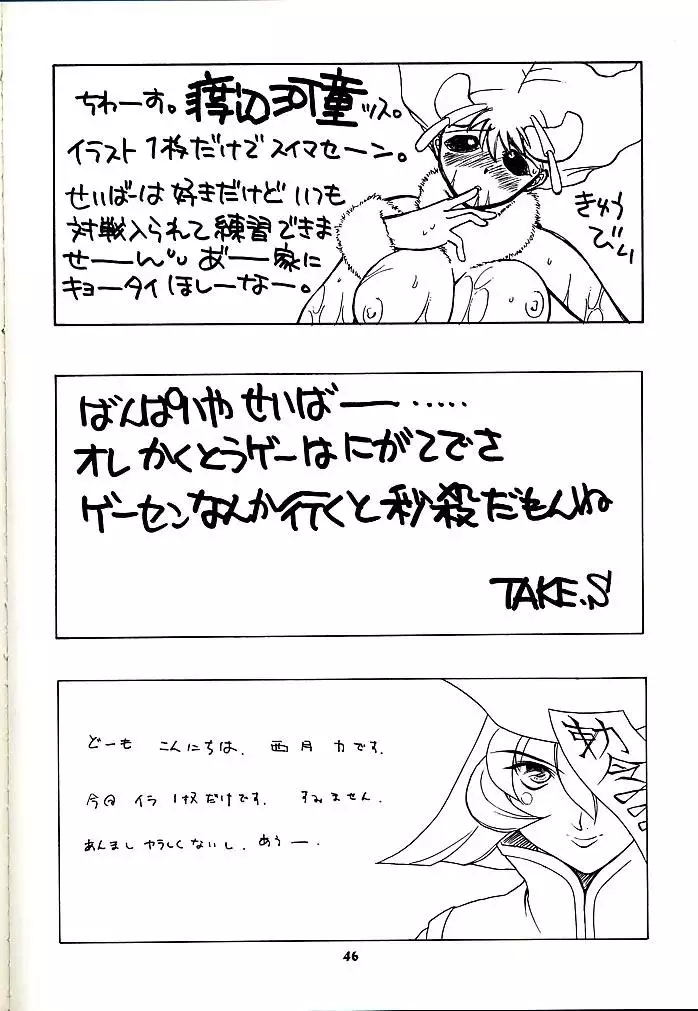 ちわーす。渡辺河童ッス。
イラスト1枚だけでスイマセーン。
せいばーは好きだけどいつも
対戦入られて練習できま
せーーん。あ゛ー家に
キョータイほしーなー。
きゅう
びぃ
ばんぱいやせいばー……
オレかくとうゲーはにがてでさ
ゲーセンなんか行くと秒殺だもんね
TAKE.S
どーもこんにちは、西月力です。
今回イラ1枚だけです。すみません。
あんましヤラしくないし、あうー。
勅
46